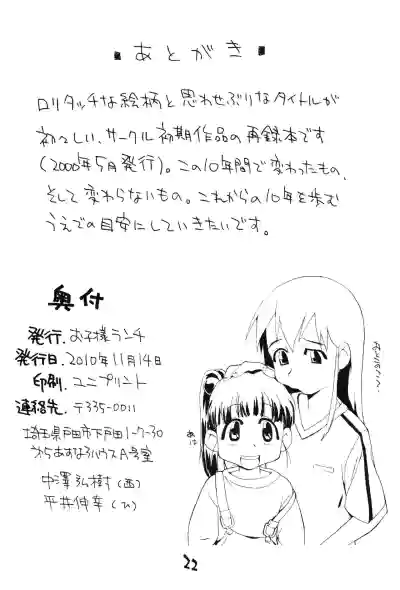 ・あとがき・
ロリタッチな絵柄と思わせぶりなタイトルが
初々しい、サークル初期作品の再録本です
(2000年5月発行)。この10年間で変わったもの、
そして変わらないもの。これからの10年を歩む
うえでの目安にしていきたいです。
奥付
発行. お子様ランチ
発行日. 2010年11月14日
印刷. ユニプリント
連絡先. 〒335-0011
埼玉県戸田市下戸田1-7-30
わらあすなろハウスA号室
中澤弘樹(画)
平井伸幸(ひ)
あは
22